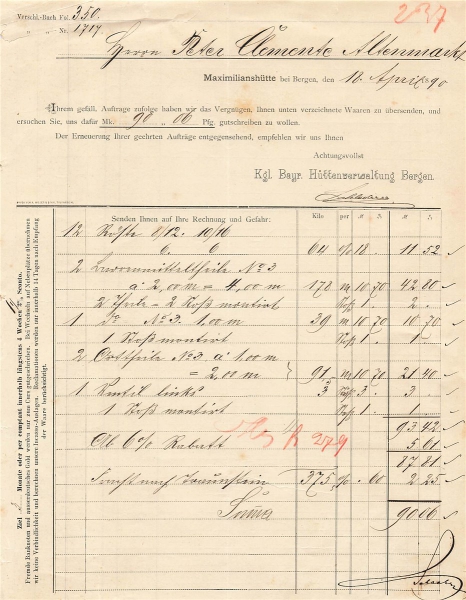 Verschl.-Buch Fol. 350.
" " Nr. 1717
237
Herrn Peter Clemente Altenmarkt
Maximilianshütte bei Bergen, den 18. April 90
Ihrem gefäll. Auftrage zufolge haben wir das Vergnügen, Ihnen unten verzeichnete Waaren zu übersenden, und
ersuchen Sie, uns dafür Mk. 90 " 06 Pfg. gutschreiben zu wollen.
Der Erneuerung Ihrer geehrten Aufträge entgegensehend, empfehlen wir uns Ihnen
Achtungsvollst
Kgl. Bayr. Hüttenverwaltung Bergen.
Senden Ihnen auf Ihre Rechnung und Gefahr: Kilo per
12 Röste 8/12. 10/16
6. 6 64 % 18. 11 52
2 No 3
à 2,00 m = 4,00 m 178 m 10 70 42 80
2 Theile = 2 Stoß montirt Stoß 1 - 2 -
1 do No 3. 1,00 m 39 m 10 70 10 70
1 Stoß montirt Stoß 1 - 1 -
2 Ortstheile No 3. à 1,00 m
= 2,00 m 91 m 10 70 21 40
1 Ventil links 3 3 - 3 -
1 Stoß montirt Stoß 1 - 1 -
93 42
Ab 6% Rabatt 5 61
87 81
Fracht nach Traunstein 375 % 60 2 25
Summa 90 06
Ziel Monate oder per comptant innerhalb längstens 4 Wochen Sconto.
Fremde Banknoten und ausserdeutsches Gold werden nur zum Börsencourse gutgeschrieben. Bei Wechseln auf Nebenplätze übernehmen
wir keine Verbindlichkeit und berechnen unsere Incasso-Auslagen. Reclamationen werden nur innerhalb 14 Tagen nach Empfang
der Waare berücksichtigt.